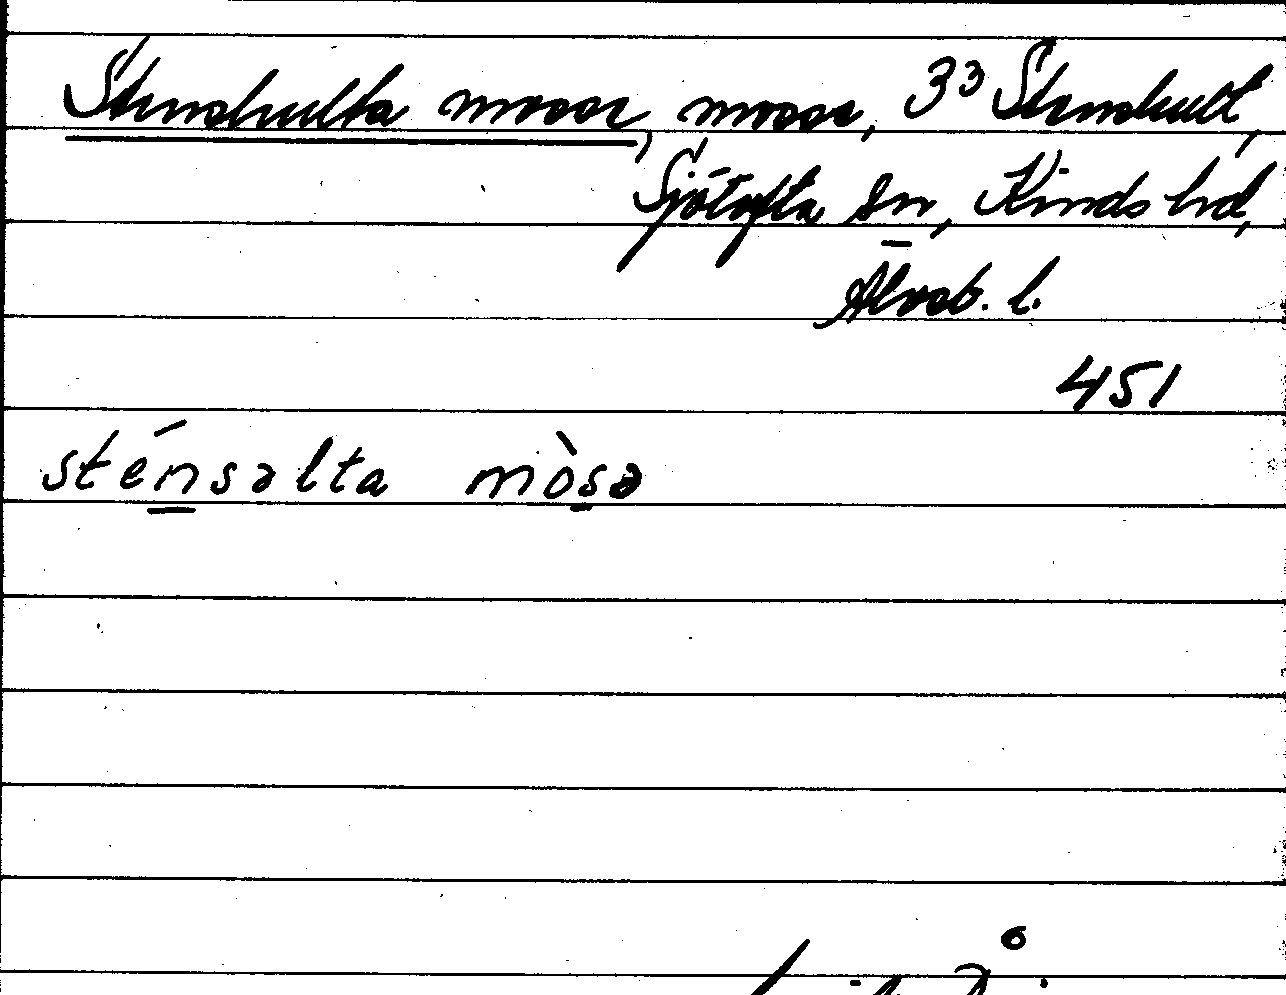 Stenshulta mosse, mosse, 3³ Stenshult,
Sjötofta sn, Kinds hd,
Älvsb. l.
451
sténsəlta mòsə